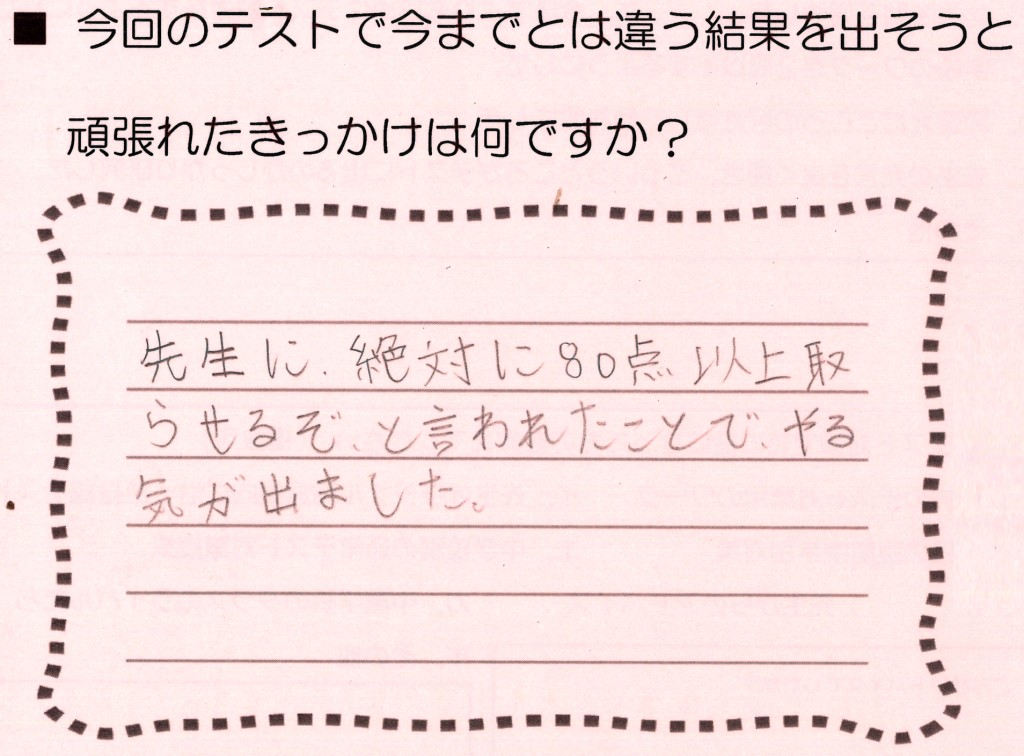 ■ 今回のテストで今までとは違う結果を出そうと
頑張れたきっかけは何ですか？
先生に、絶対に80点以上取
らせるぞ、と言われたことで、やる
気が出ました。